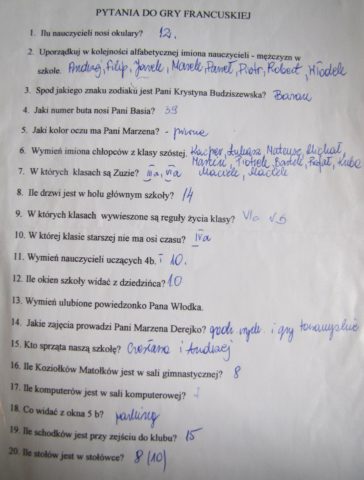 PYTANIA DO GRY FRANCUSKIEJ
1. Ilu nauczycieli nosi okulary? 12.
2. Uporządkuj w kolejności alfabetycznej imiona nauczycieli - mężczyzn w
szkole. Andrzej, Filip, Janek, Marek, Paweł, Piotr, Robert, Włodek
3. Spod jakiego znaku zodiaku jest Pani Krystyna Budziszewska? Baran
4. Jaki numer buta nosi Pani Basia? 39
5. Jaki kolor oczu ma Pani Marzena? - piwne
6. Wymień imiona chłopców z klasy szóstej. Kacper, Łukasz, Mateusz, Michał,
Marcin, Piotrek, Bartek, Rafał, Kuba
7. W których klasach są Zuzie? IIIa, Va Maciek, Maciek
8. Ile drzwi jest w holu głównym szkoły? 14
9. W których klasach wywieszone są reguły życia klasy? VIa Vb
10. W której klasie starszej nie ma osi czasu? IVa
11. Wymień nauczycieli uczących 4b. 10.
12. Ile okien szkoły widać z dziedzińca? 10
13. Wymień ulubione powiedzonko Pana Włodka.
14. Jakie zajęcia prowadzi Pani Marzena Derejko? godz. wych. i gry
15. Kto sprząta naszą szkołę? i Andrzej
16. Ile Koziołków Matołków jest w sali gimnastycznej? 8
17. Ile komputerów jest w sali komputerowej?
18. Co widać z okna 5 b? parking
19. Ile schodków jest przy zejściu do klubu? 15
20. Ile stołów jest w stołówce? 8 (10)